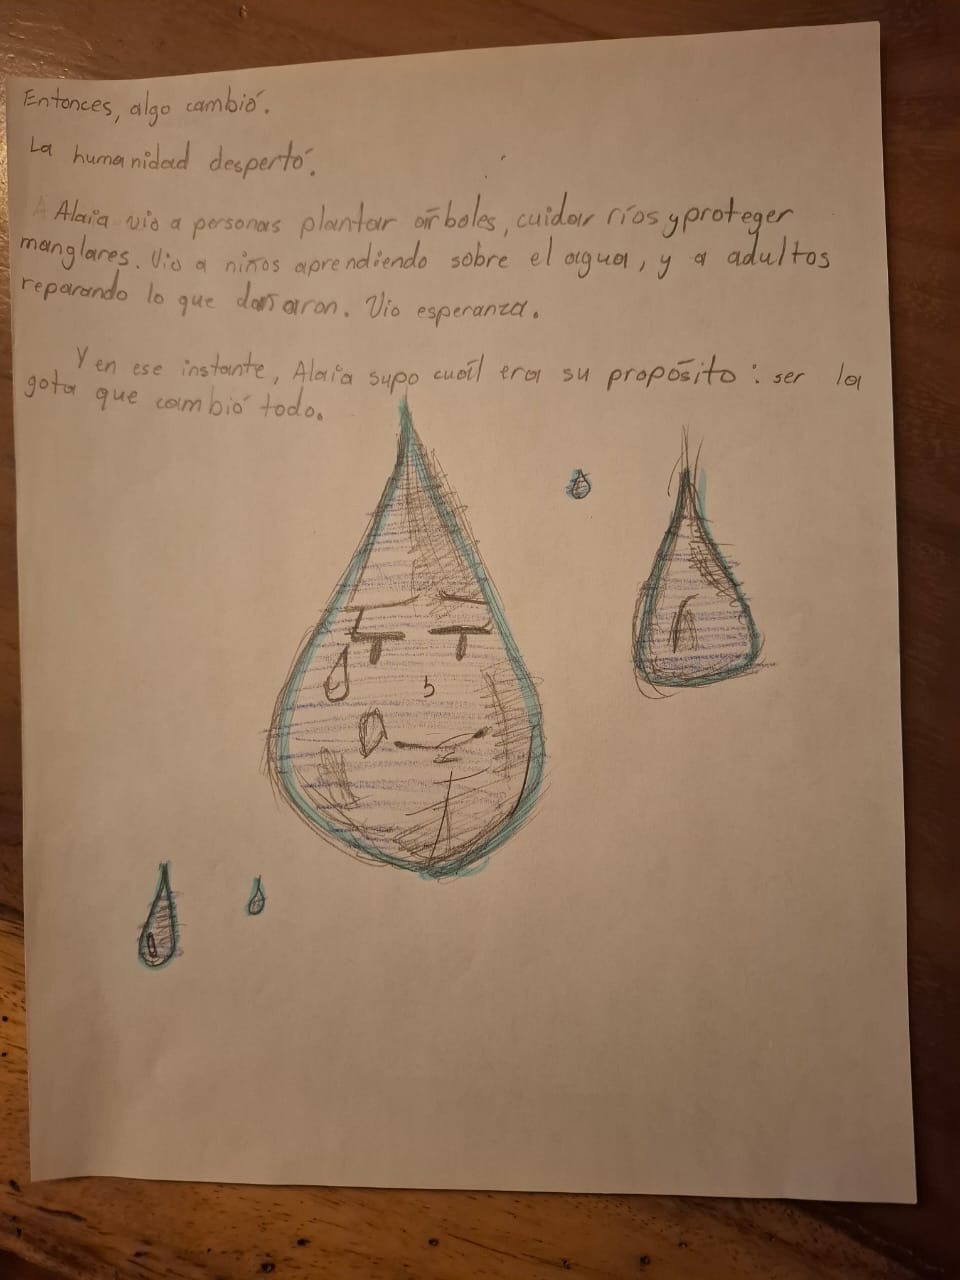 Entonces, algo cambió.
La humanidad despertó.
Alaia vio a personas plantar árboles, cuidar ríos y proteger
manglares. Vio a niños aprendiendo sobre el agua, y a adultos
reparando lo que dañaron. Vio esperanza.
Y en ese instante, Alaia supo cuál era su propósito: ser la
gota que cambió todo.